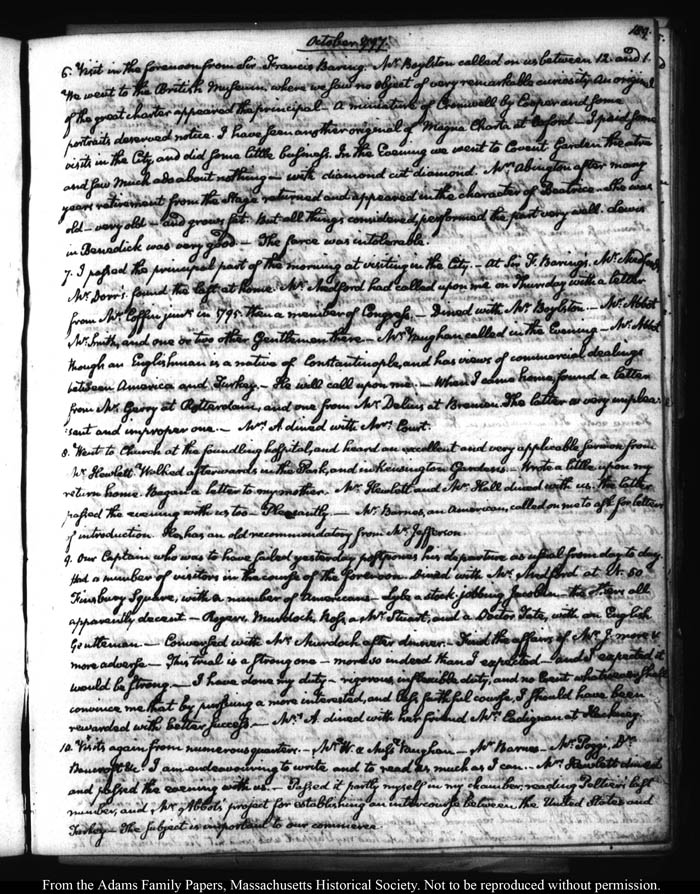 October 1797.
189.
6. Visit in the forenoon from Sir Francis Baring. Mr. Boylston called on us between 12. and 1.
We went to the British Museum, where we saw no object of very remarkable curiosity. An original
of the great charter appeared the principal — A miniature of Cromwell by Cooper and some
portraits deserved notice. I have seen another original of Magna Charta at Oxford — I paid some
visits in the City, and did some little business. In the Evening we went to Covent Garden theatre
and saw Much ado about nothing — with diamond cut diamond. Mrs. Abington after many
years retirement from the Stage returned and appeared in the character of Beatrice. She was
old — very old — and grows fat. But all things considered performed the part very well. Lewis
in Benedick was very good — The farce was intolerable.
7. I passed the principal part of the morning at visiting in the City. — At Sir F. Barings, Mr.
Mr. Dorr's. found the last at home. Mr. Medford had called upon me on Thursday with a letter
from Mr. Coffin junr. in 1795. then a member of Congress. — Dined with Mr. Boylston. — Mr. Abbot
Mr. Smith, and one or two other Gentlemen there — Mr. Vaughan called in the Evening — Mr. Abbot
though an Englishman is a native of Constantinople, and has views of commercial dealings
between America and Turkey. — He will call upon me. — When I came home, found a letter
from Mr. Gerry at Rotterdam, and one from Mr. Delius at Bremen. The latter a very unplea-
:sant and improper one. — Mrs. A dined with Mrs. Court.
8. Went to Church at the foundling hospital, and heard an excellent and very applicable sermon from
Mr. Hewlett. Walked afterwards in the Park, and in Kensington Gardens — Wrote a little upon my
return home. Began a letter to my mother. Mr. Hewlett and Mr. Hall dined with us. The latter
passed the evening with us too — Pleasantly. — Mr. Barnes, an American, called on me to ask for letters
of introduction. He has an old recommendatory from Mr. Jefferson.
9. Our Captain who was to have sailed yesterday postpones his departure as usual from day to day.
Had a number of visitors in the course of the forenoon. Dined with Mr. Medford at N. 50
Finsbury Square, with a number of Americans — a stock-jobbing Jacobin — the others all
apparently decent — Rogers, Murdock, Ross, a Mr. Stuart, and a Doctor Tate, with an English
Gentleman — Conversed with Mr. Murdock after dinner. — Find the affairs of Mr. J. more &
more adverse — This trial is a strong one — more so indeed than I expected — and I expected it
would be strong. — I have done my duty — rigorous, inflexible duty, and no Event whatever shall
convince me that by pursuing a more interested, and less faithful course, I should have been
rewarded with better success. — Mrs. A. dined with her friend Mrs. at Hackney.
10. Visits again from numerous quarters. — Mr. W. & Miss Vaughan — Mr. Barnes — Mr. Poggi, Dr.
Bancroft &c. I am endeavouring to write and to read as much as I can. — Mr. Hewlett dined
and passed the evening with us. — Passed it partly myself in my chamber, reading Peltier's last
number, and Mr. Abbots project for establishing an intercourse between the United States and
Turkey — The subject is important to our commerce.
From the Adams Family Papers, Massachusetts Historical Society. Not to be reproduced without permission.